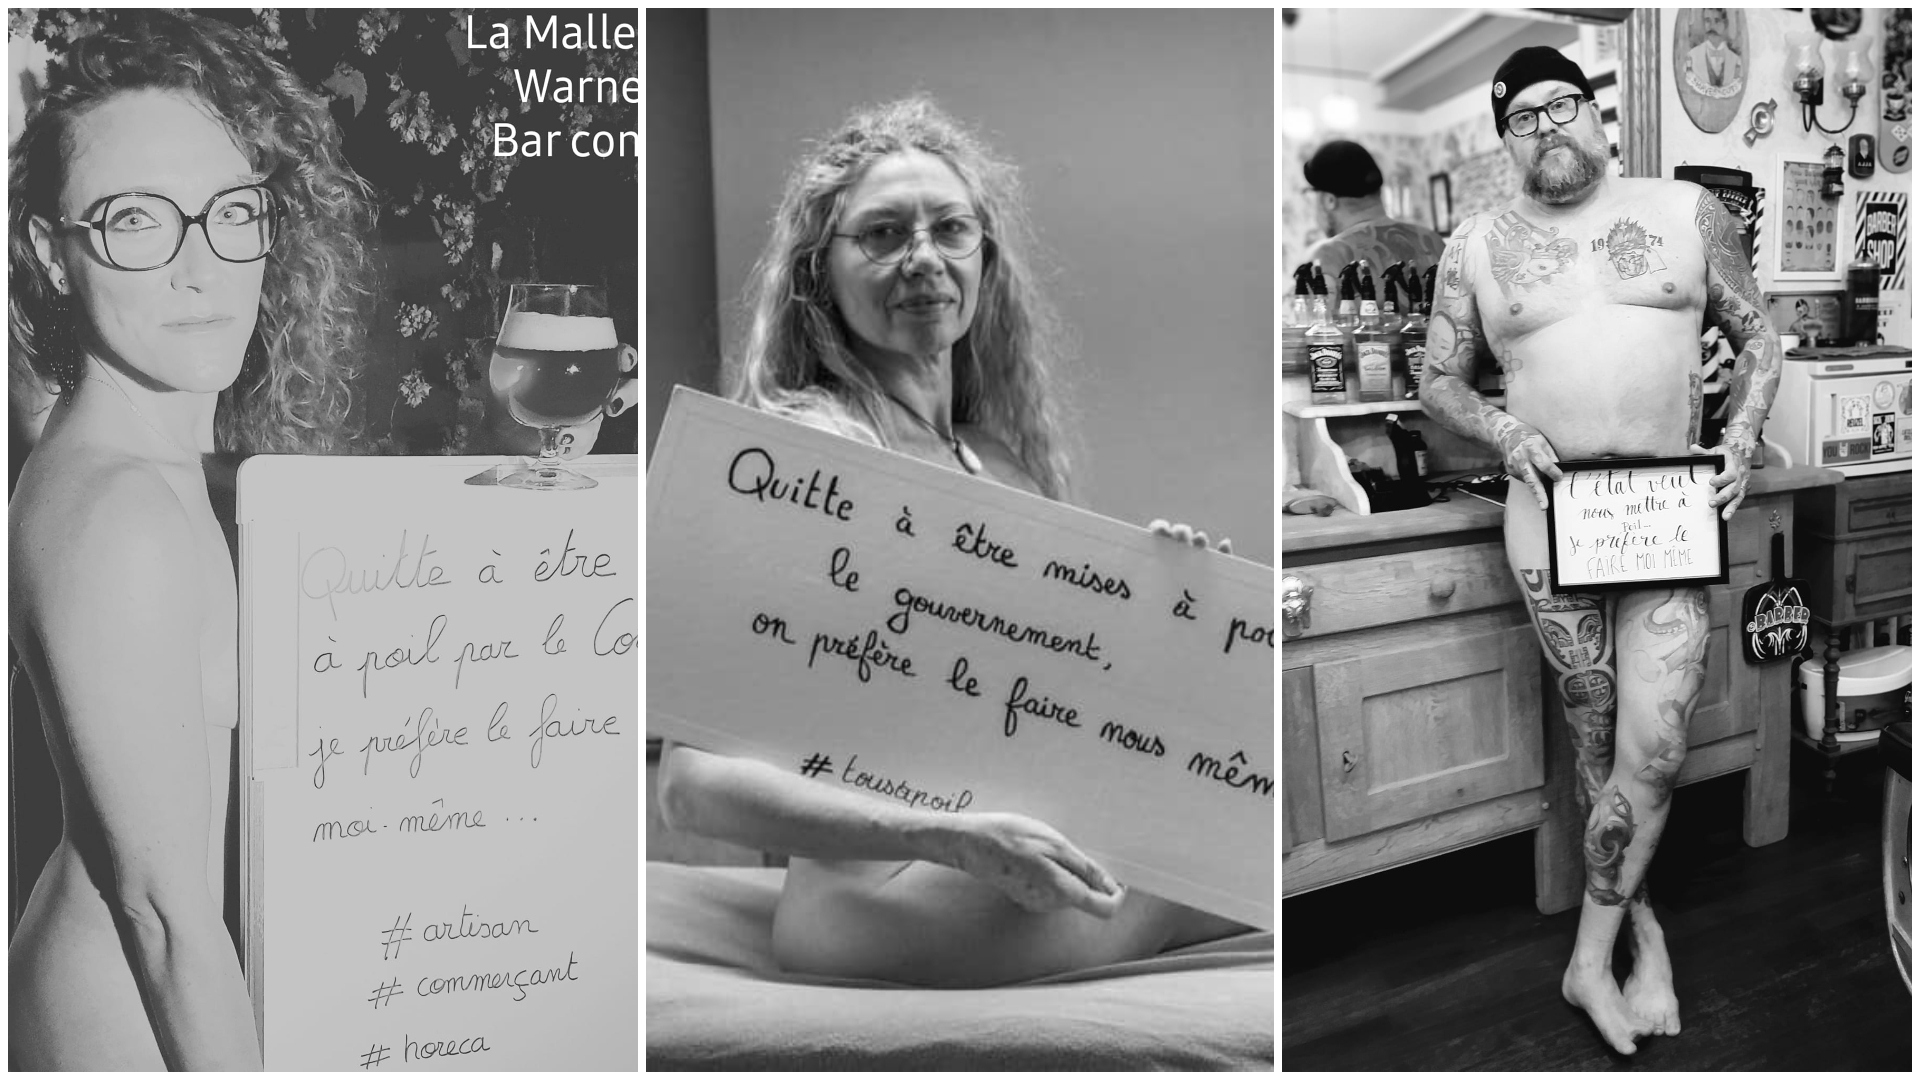 La Malle
Warne
Bar con
Quitte à être
à poil par le Co
je préfère le faire
moi-même ...
# artisan
# commerçant
# horeca
Quitte à être mises à poi
le gouvernement,
on préfère le faire nous mêm
# tousàpoil
19 74
BARBER
SHOP
YOU ROCK!
l'état veut
nous mettre à
poil...
je préfère le
FAIRE MOI MÊME
BARBER